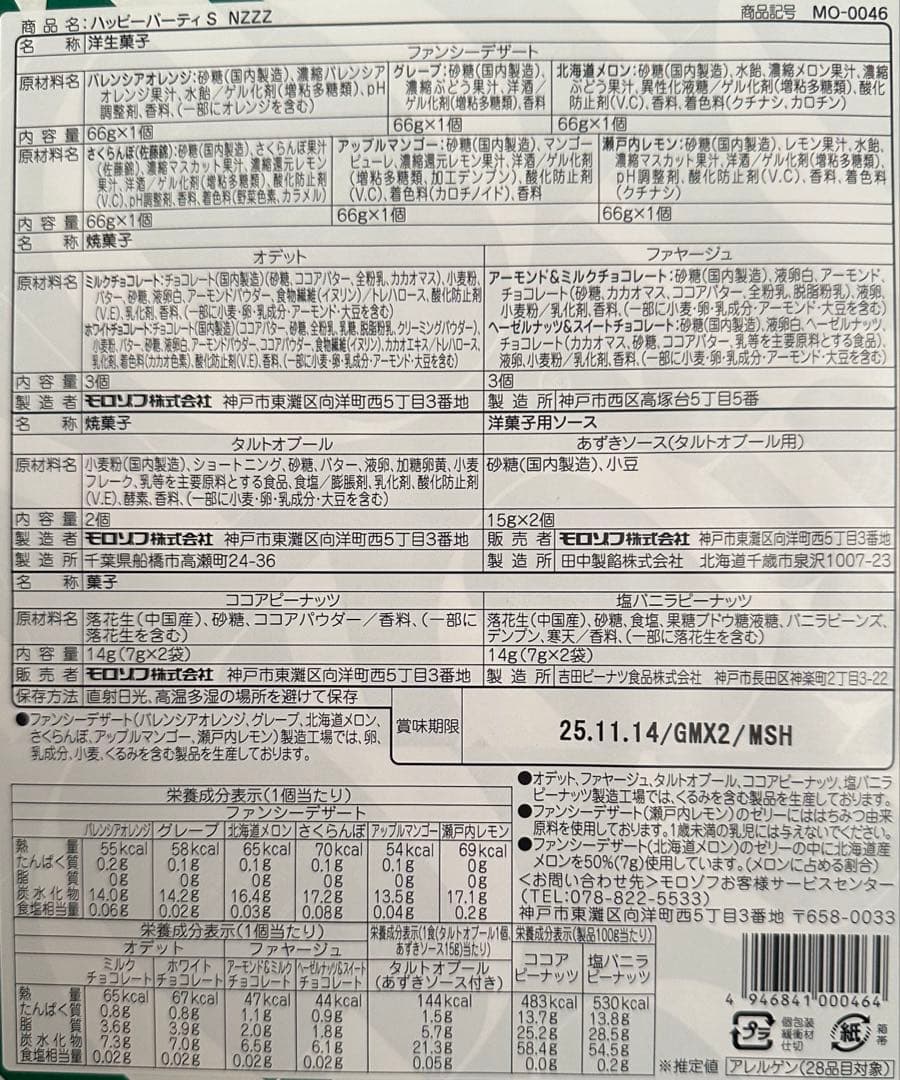 商品名:ハッピーパーティS NZZZ
商品記号 MO-0046
名称 洋生菓子
ファンシーデザート
原材料名
バレンシアオレンジ:砂糖(国内製造)、濃縮バレンシア
オレンジ果汁、水飴/ゲル化剤(増粘多糖類)、pH
調整剤、香料、(一部にオレンジを含む)
グレープ:砂糖(国内製造)、
濃縮ぶどう果汁、洋酒/
ゲル化剤(増粘多糖類)、香料
北海道メロン:砂糖(国内製造)、水飴、濃縮メロン果汁、濃縮
ぶどう果汁、異性化液糖/ゲル化剤(増粘多糖類)、酸化
防止剤(V.C)、香料、着色料(クチナシ、カロチン)
内容量 66g×1個 66g×1個 66g×1個
原材料名
さくらんぼ(佐藤錦):砂糖(国内製造)、さくらんぼ果汁
(佐藤錦)、濃縮マスカット果汁、濃縮還元レモン
果汁、洋酒/ゲル化剤(増粘多糖類)、酸化防止剤
(V.C)、pH調整剤、香料、着色料(野菜色素、カラメル)
アップルマンゴー:砂糖(国内製造)、マンゴー
ピューレ、濃縮還元レモン果汁、洋酒/ゲル化剤
(増粘多糖類、加工デンプン)、酸化防止剤
(V.C)、着色料(カロチノイド)、香料
瀬戸内レモン:砂糖(国内製造)、レモン果汁、水飴、
濃縮マスカット果汁、洋酒/ゲル化剤(増粘多糖類)、
pH調整剤、酸化防止剤(V.C)、香料、着色料
(クチナシ)
内容量 66g×1個 66g×1個 66g×1個
名称 焼菓子
オデット
ファヤージュ
原材料名
ミルクチョコレート:チョコレート(国内製造)(砂糖、ココアバター、全粉乳、カカオマス)、小麦粉、
バター、砂糖、液卵白、アーモンドパウダー、食物繊維(イヌリン)/トレハロース、酸化防止剤
(V.E)、乳化剤、香料、(一部に小麦・卵・乳成分・アーモンド・大豆を含む)
ホワイトチョコレート:チョコレート(国内製造)(ココアバター、砂糖、全粉乳、乳糖、脱脂粉乳、クリーミングパウダー)、
小麦粉、バター、砂糖、液卵白、アーモンドパウダー、ココアパウダー、食物繊維(イヌリン)、カカオエキス/トレハロース、
乳化剤、着色料(カカオ色素)、酸化防止剤(V.E)、香料、(一部に小麦・卵・乳成分・アーモンド・大豆を含む)
アーモンド&ミルクチョコレート:砂糖(国内製造)、液卵白、アーモンド、
チョコレート(砂糖、カカオマス、ココアバター、全粉乳、脱脂粉乳)、液卵、
小麦粉/乳化剤、香料、(一部に小麦・卵・乳成分・アーモンド・大豆を含む)
ヘーゼルナッツ&スイートチョコレート:砂糖(国内製造)、液卵白、ヘーゼルナッツ、
チョコレート(カカオマス、砂糖、ココアバター、乳等を主要原料とする食品)、
液卵、小麦粉/乳化剤、香料、(一部に小麦・卵・乳成分・アーモンド・大豆を含む)
内容量 3個 3個
製造者 モロゾフ株式会社 神戸市東灘区向洋町西5丁目3番地 製造所 神戸市西区高塚台5丁目5番
名称 焼菓子 洋菓子用ソース
タルトオブール あずきソース(タルトオブール用)
原材料名
小麦粉(国内製造)、ショートニング、砂糖、バター、液卵、加糖卵黄、小麦
フレーク、乳等を主要原料とする食品、食塩/膨脹剤、乳化剤、酸化防止剤
(V.E)、酵素、香料、(一部に小麦・卵・乳成分・大豆を含む)
砂糖(国内製造)、小豆
内容量 2個 15g×2個
製造者 モロゾフ株式会社 神戸市東灘区向洋町西5丁目3番地 販売者 モロゾフ株式会社 神戸市東灘区向洋町西5丁目3番地
製造所 千葉県船橋市高瀬町24-36 製造所 田中製餡株式会社 北海道千歳市泉沢1007-23
名称 菓子
ココアピーナッツ 塩バニラピーナッツ
原材料名
落花生(中国産)、砂糖、ココアパウダー/香料、(一部に
落花生を含む)
落花生(中国産)、砂糖、食塩、果糖ブドウ糖液糖、バニラビーンズ、
デンプン、寒天/香料、(一部に落花生を含む)
内容量 14g(7g×2袋) 14g(7g×2袋)
販売者 モロゾフ株式会社 神戸市東灘区向洋町西5丁目3番地 製造所 吉田ピーナツ食品株式会社 神戸市長田区神楽町2丁目3-22
保存方法 直射日光、高温多湿の場所を避けて保存
●ファンシーデザート(バレンシアオレンジ、グレープ、北海道メロン、
さくらんぼ、アップルマンゴー、瀬戸内レモン)製造工場では、卵、
乳成分、小麦、くるみを含む製品を生産しております。
賞味期限 25.11.14/GMX2/MSH
●オデット、ファヤージュ、タルトオブール、ココアピーナッツ、塩バニラ
ピーナッツ製造工場では、くるみを含む製品を生産しております。
●ファンシーデザート(瀬戸内レモン)のゼリーにははちみつ由来
原料を使用しております。1歳未満の乳児には与えないでください。
●ファンシーデザート(北海道メロン)のゼリーの中に北海道産
メロンを50%(7g)使用しています。(メロンに占める割合)
<お問い合わせ先>モロゾフお客様サービスセンター
(TEL:078-822-5533)
神戸市東灘区向洋町西5丁目3番地 〒658-0033
栄養成分表示(1個当たり)
ファンシーデザート
バレンシアオレンジ グレープ 北海道メロン さくらんぼ アップルマンゴー 瀬戸内レモン
熱量 55kcal 58kcal 65kcal 70kcal 54kcal 69kcal
たんぱく質 0.2g 0.1g 0.1g 0.1g 0.1g 0g
脂質 0g 0g 0g 0g 0g 0g
炭水化物 14.0g 14.2g 16.4g 17.2g 13.5g 17.1g
食塩相当量 0.06g 0.02g 0.03g 0.08g 0.04g 0.2g
栄養成分表示(1個当たり)
オデット ファヤージュ
ミルクチョコレート ホワイトチョコレート アーモンド&ミルクチョコレート ヘーゼルナッツ&スイートチョコレート
栄養成分表示(1食(タルトオブール1個、
あずきソース15g)当たり)
タルトオブール
(あずきソース付き)
栄養成分表示(製品100g当たり)
ココアピーナッツ 塩バニラピーナッツ
熱量 65kcal 67kcal 47kcal 44kcal 144kcal 483kcal 530kcal
たんぱく質 0.8g 0.8g 1.1g 0.9g 1.5g 13.7g 13.8g
脂質 3.6g 3.9g 2.0g 1.8g 5.7g 25.2g 28.5g
炭水化物 7.3g 7.0g 6.5g 6.1g 21.3g 58.4g 54.5g
食塩相当量 0.02g 0.02g 0.02g 0.02g 0.05g 0.0g 0.2g
4 946841 000464
プラ 個包装 緩衝材 仕切
紙 箱 帯
※推定値 アレルゲン(28品目対象)